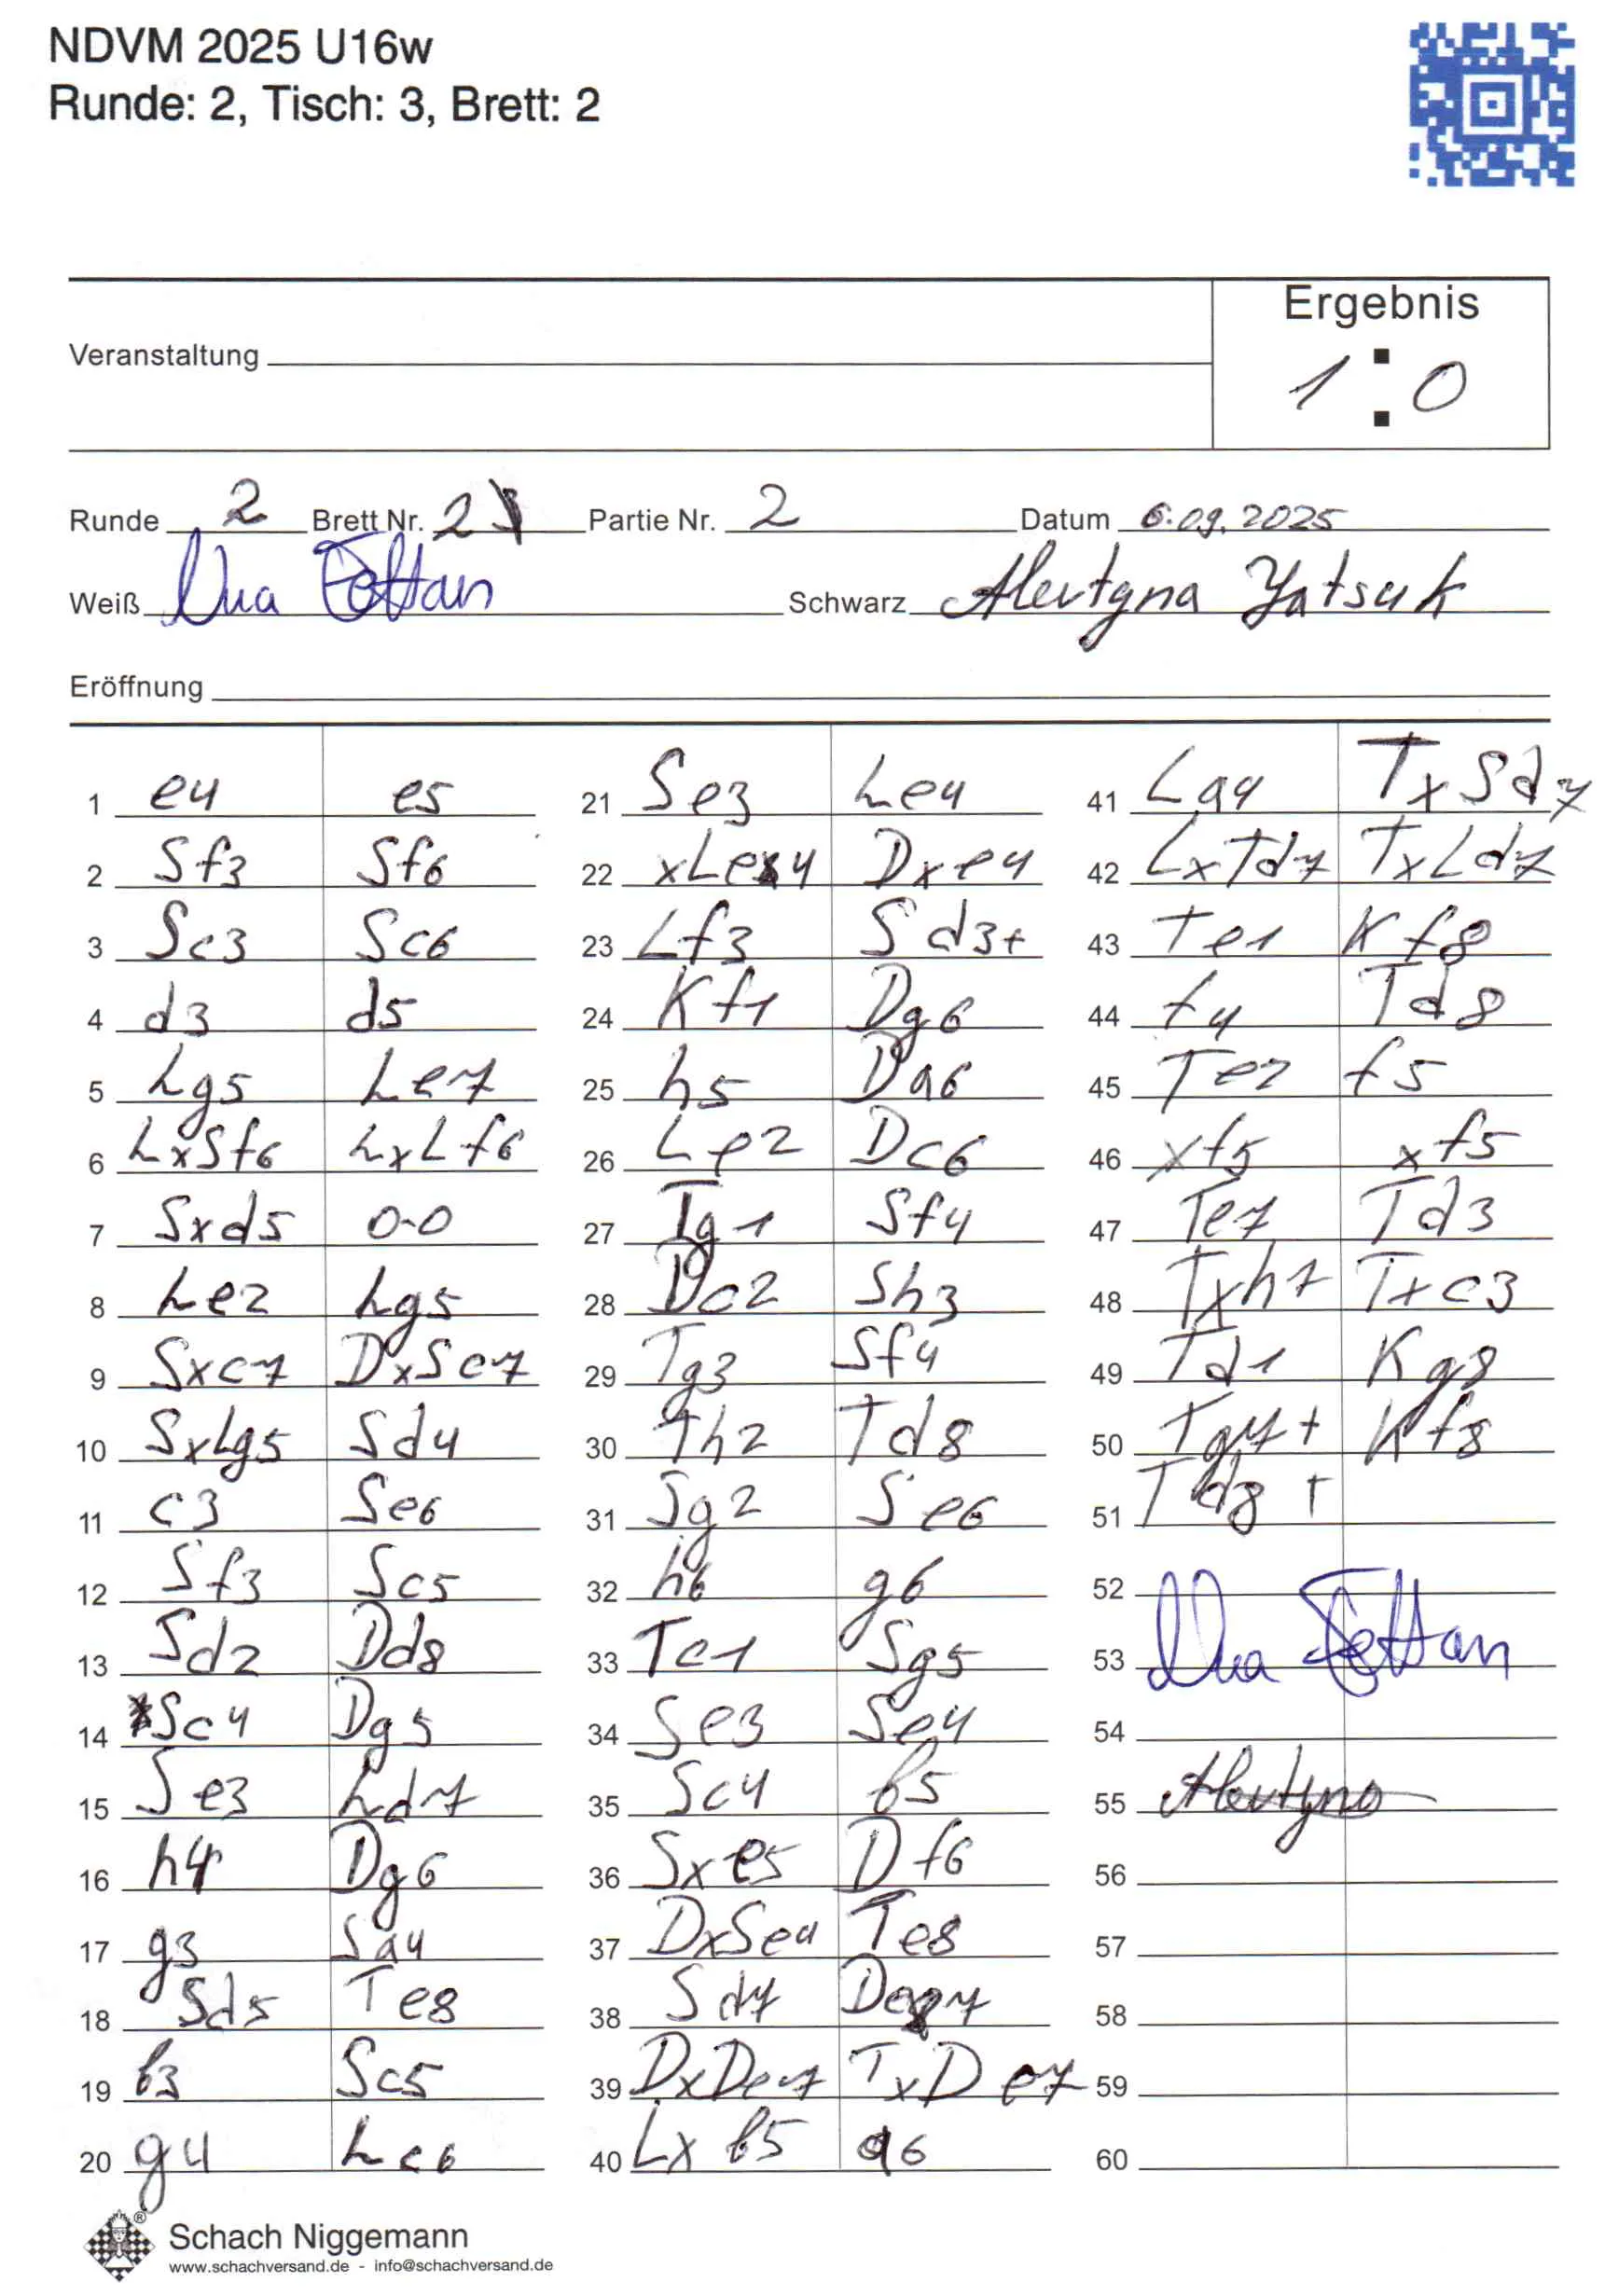 NDVM 2025 U16w
Runde: 2, Tisch: 3, Brett: 2
Ergebnis
Veranstaltung
1 : 0
Runde 2 Brett Nr. 2 Partie Nr. 2 Datum 6.09.2025
Weiß Schwarz Alevtyna Yatsuk
Eröffnung
1 e4 e5
2 Sf3 Sf6
3 Sc3 Sc6
4 d3 d5
5 Lg5 Le7
6 LxSf6 LxLf6
7 Sxd5 0-0
8 Le2 Lg5
9 Sxc7 DxSc7
10 SxLg5 Sd4
11 c3 Se6
12 Sf3 Sc5
13 Sd2 Dd8
14 Sc4 Dg5
15 Se3 Ld7
16 h4 Dg6
17 g3 Sa4
18 Sd5 Te8
19 b3 Sc5
20 g4 Lc6
21 Se3 Le4
22 xLe4 Dxe4
23 Lf3 Sd3+
24 Kf1 Dg6
25 h5 Da6
26 Le2 Dc6
27 Tg1 Sf4
28 Dc2 Sh3
29 Tg3 Sf4
30 Th2 Td8
31 Sg2 Se6
32 h6 g6
33 Te1 Sg5
34 Se3 Se4
35 Sc4 b5
36 Sxe5 Df6
37 DxSe4 Te8
38 Sd7 De7
39 DxDe7 TxDe7
40 Lxb5 a6
41 La4 TxSd7
42 LxTd7 TxLd7
43 Te1 Kf8
44 f4 Td8
45 Te2 f5
46 xf5 xf5
47 Te7 Td3
48 Txh7 Txc3
49 Td1 Kg8
50 Tg7+ Kf8
51 Td8+
52
53
54
55 Alevtyna
56
57
58
59
60
Schach Niggemann
www.schachversand.de - info@schachversand.de